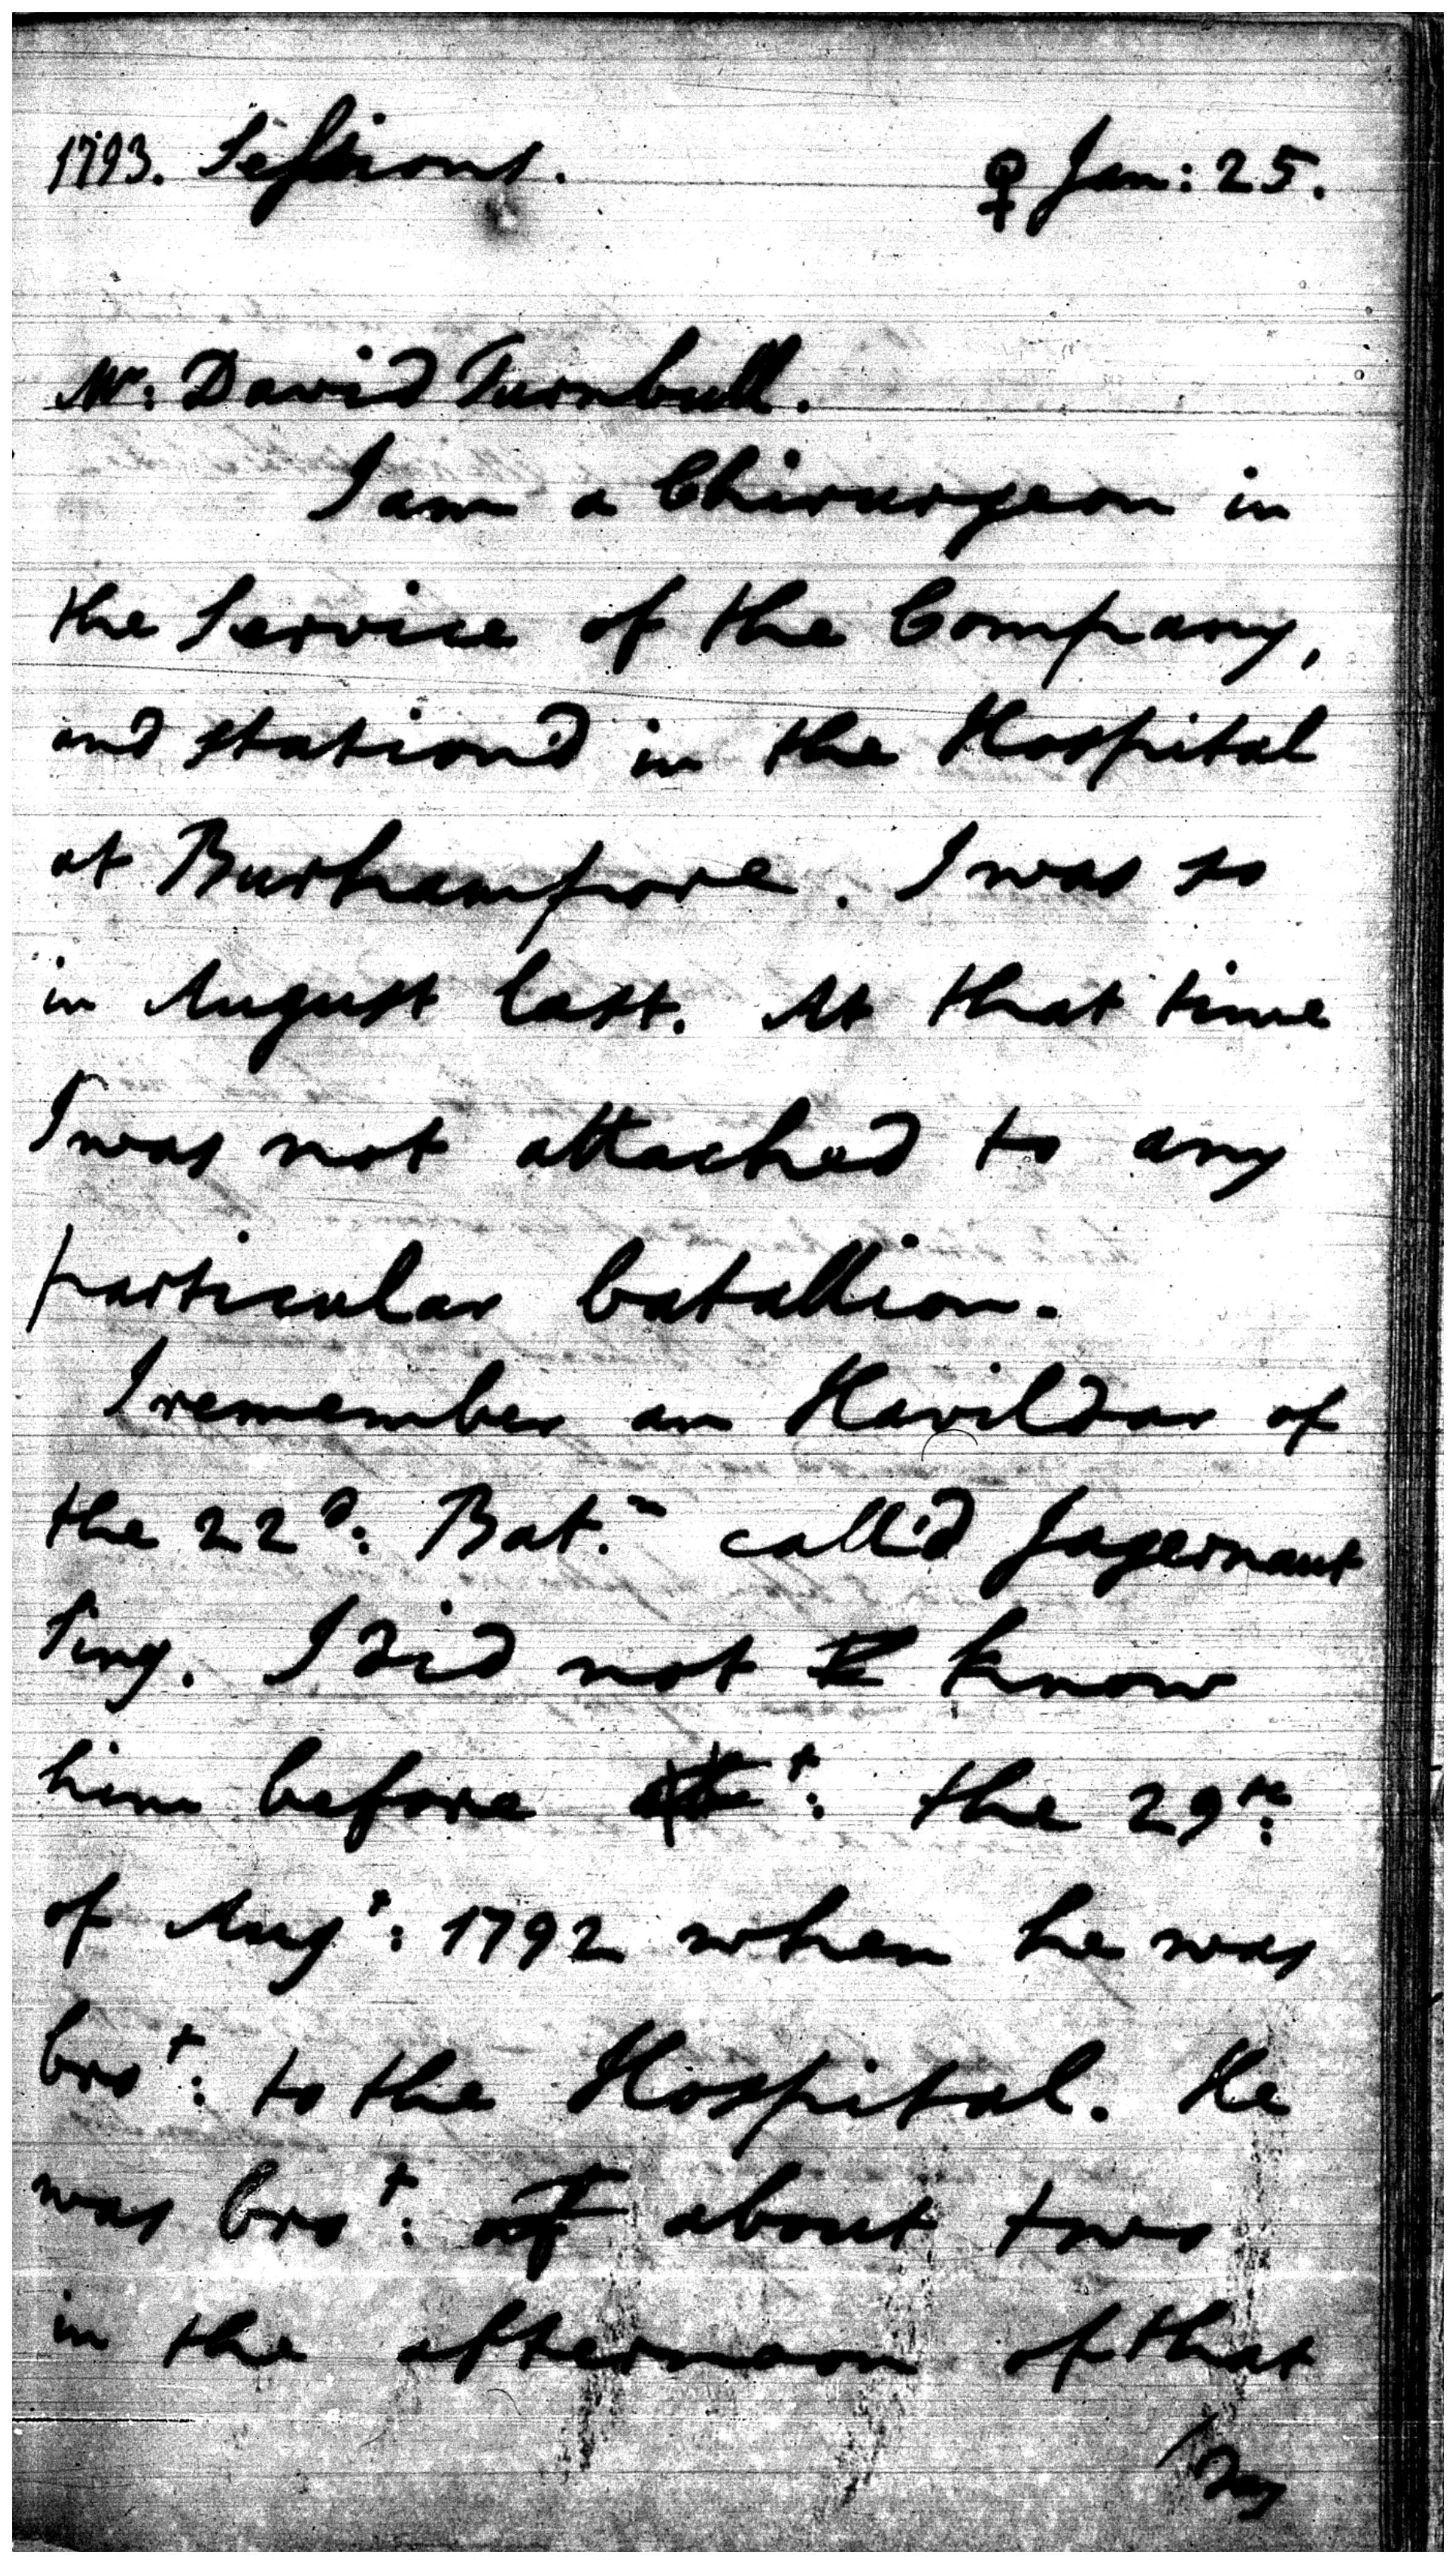 1793. Sessions. ♀ Jan: 25.
Mr: David Turnbull.
I am a Chirurgeon in
the Service of the Company,
and station'd in the Hospital
at Burhampore. I was so
in August last. At that time
I was not attached to any
particular batallion.
I remember an Havildar of
the 22d: Batn call'd Jagernaut
Sing. I did not know
him before the 29th:
of Augt: 1792 when he was
brot: to the Hospital. He
was brot: about two
in the afternoon of that
day